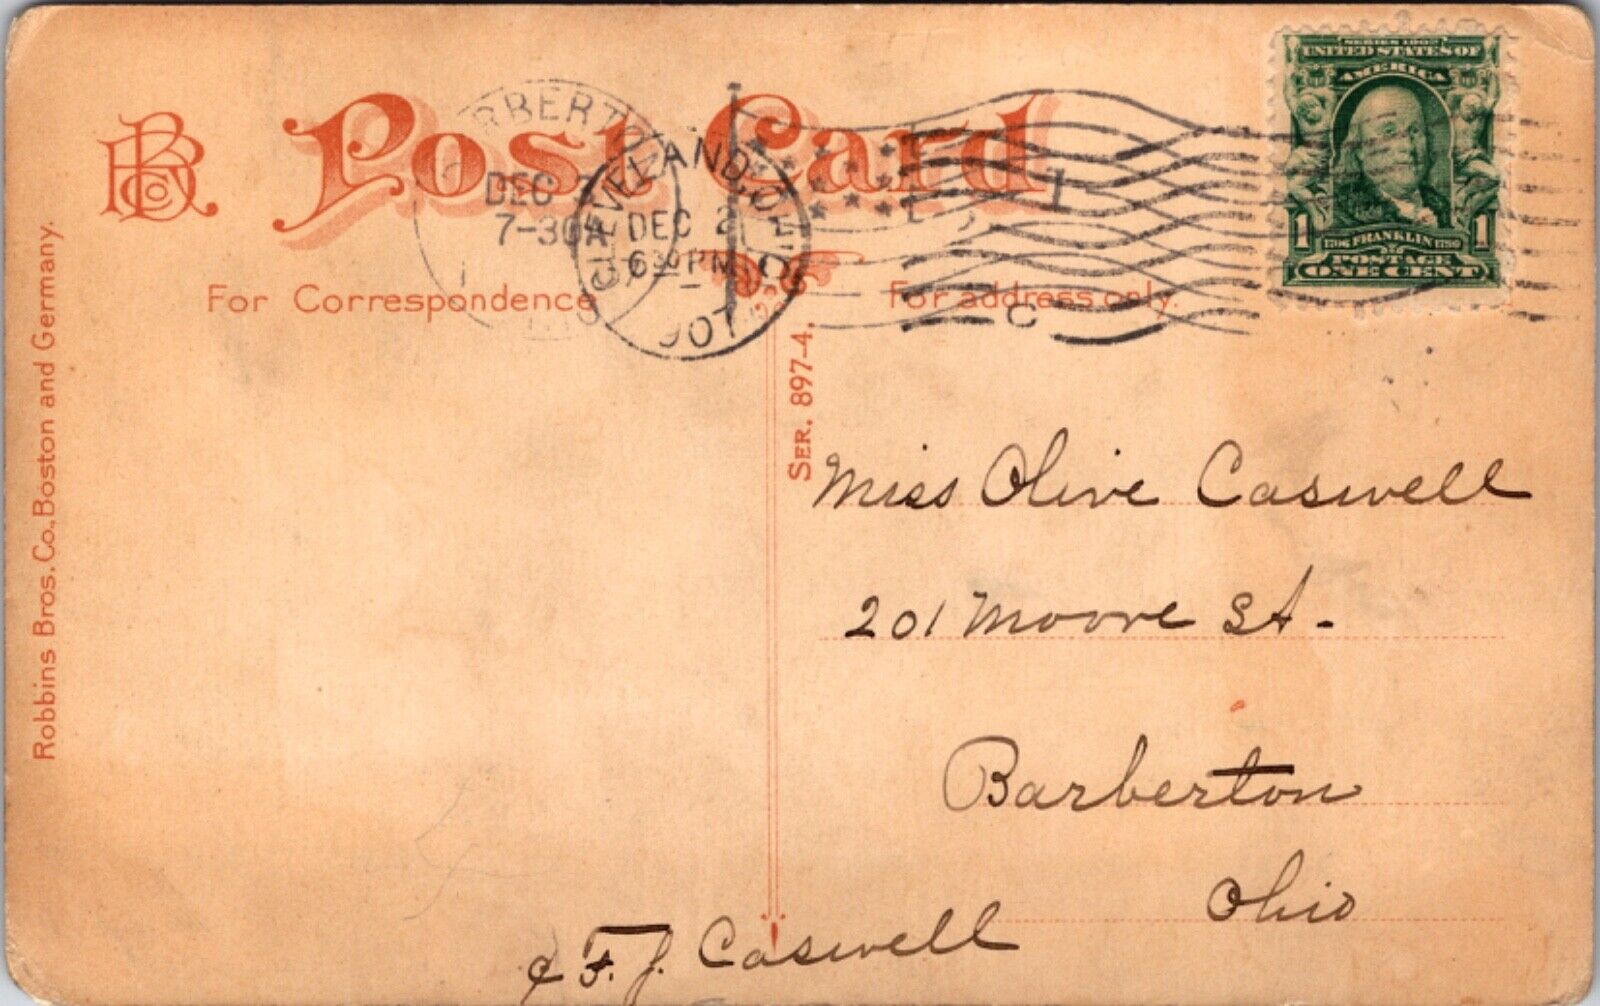 Post Card
BARBERTON
DEC
7-30A
CLEVELAND, OHIO
DEC 2
6 30 PM
1907
1
C
SERIES 1902
UNITED STATES OF
AMERICA
1 1
1706 FRANKLIN 1790
POSTAGE
ONE CENT
For Correspondence
For address only.
Robbins Bros. Co., Boston and Germany.
SER. 897-4.
Miss Olive Caswell
201 Moore St.
Barberton
Ohio
F. J. Caswell